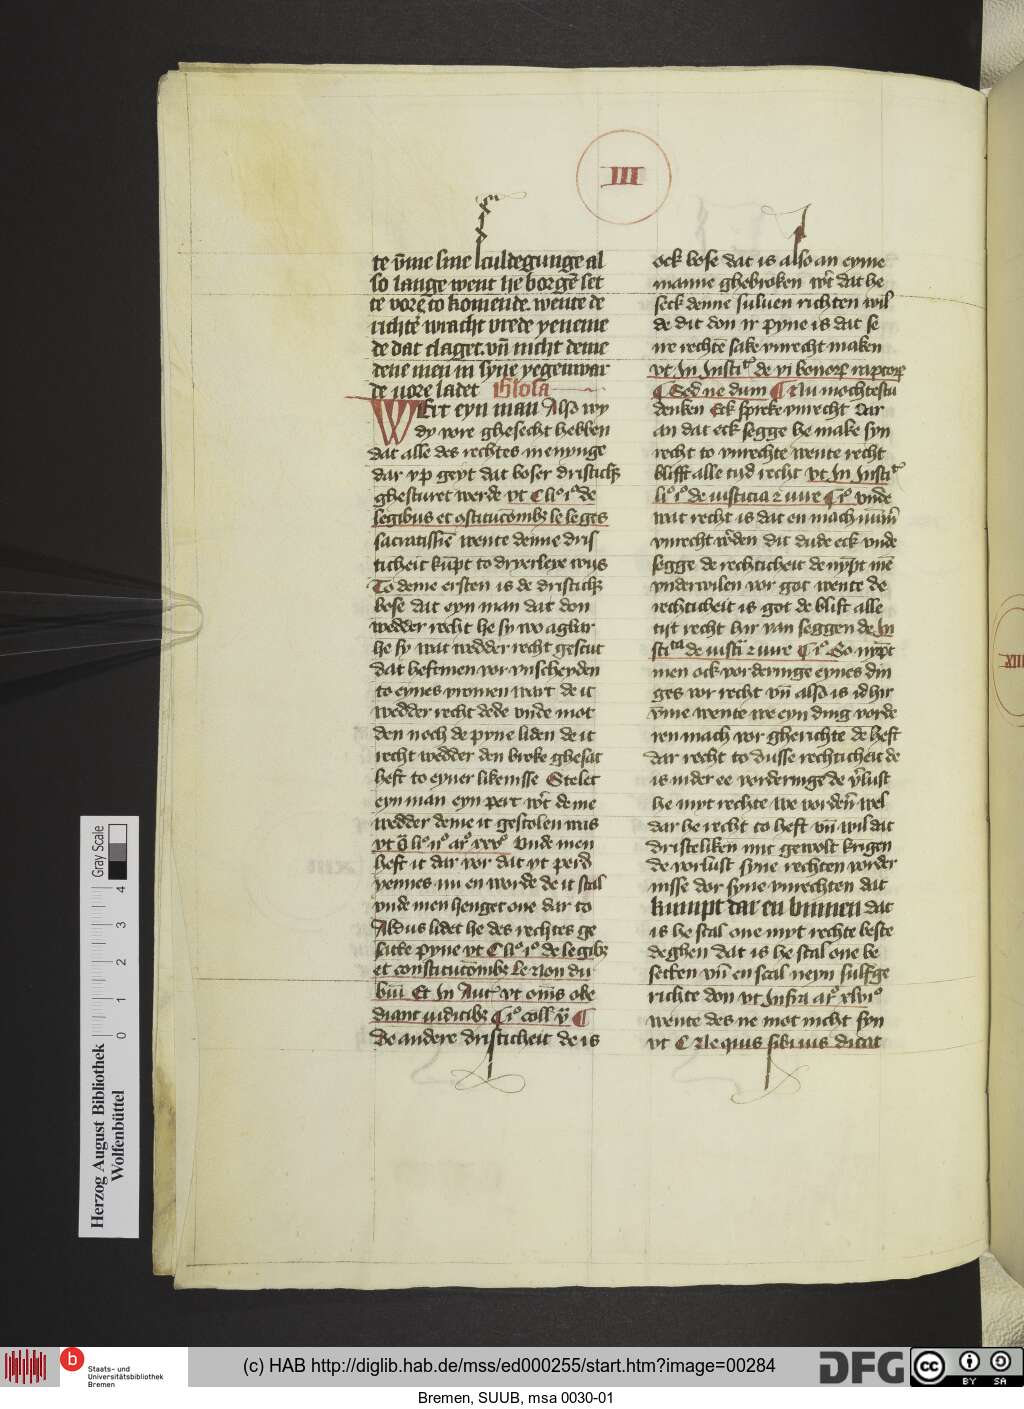 III
te v̄me sine sculdegunge al
so lange went he borgē set
te vorē to komende. wente de
richter wracht vrede yeneme
de dat claget. vn̄ nicht deme
deue men in syne yegenwar
de vore ladet Glosa
WErt eyn man Also wy
dy vore ghesecht hebben
dat alle des rechtes menynge
dar vp geyt dat boser dristich&
ghesturet werde vt C li° i° de
legibus et ɔstitucōmbꝫ le leges
sacratissīe wente denne dris
ticheit kūpt to dryerleye wijs
To deme ersten is de dristich&
bose dat eyn man dat don
wedder recht he sy wo achbar
he sy wat wedder recht gescut
dat heftmen vor vnscheyden
to eynes vromen wart de it
wedder recht dede vnde mot
den noch de pyne liden de it
recht wedder den broke ghesat
heft to eyner likenisse Stelet
eyn man eyn pert wr̄t deme
wedder deme it gestolen was
vt ꝫ li° ii° ar° xxx° vnde men
heft it dar vor dat yt perd
yennes nu en worde de it stal
vnde men henget one dar to
Aldus lidet he des rechtes ge
satte pyne vt C li° i° de legibꝫ
et constitucōmbꝫ le Non du
biū Et In Aut' vt om̄s obe
diant iudicibꝫ C i° coll v̄ C
De andere dristicheit de is
ock bose dat is also an eyme
manne ghebroken wr̄t dat he
seck denne suluen richten wil
de dit don ir pyne is dat se
ne rechtē sake vnrecht maken
vt In Insti^t de vi bonorꝫ raptorꝫ
C Sed ne dum C Nu mochtestu
denken Eck spreke vnrecht dar
an dat eck segge he make syn
recht to vnrechte wente recht
blifft alle tyd recht vt In Insti^t
li° i° de iusticia ⁊ iure C i° vnde
wat recht is dat en mach nūm̄
vnrecht wo̊den dit dude eck vnde
segge de rechticheit de nympt mē
vnderwilen vor got wente de
rechticheit is got de blift alle
tijt recht hir van seggen de In
sti^ta de iusti^a ⁊ iure C i° So nympt
men ock vorderinge eynes din
ges vor recht vn̄ also is id hir
v̄me wente we eyn ding vorde
ren mach vor gherichte de heft
dar recht to dusse rechticheit de
is inder ee vorderinge de v̓lust
he myt rechte we vorden̄ wel
dar he recht to heft vn̄ wil dat
dristeliken mit gewolt krigen
de vorlust syne rechten vorder
nisse dor syne vnrechten dat
kumpt dar en binnen dat
is he scal one myt rechte beste
deghen dat is he scal one be
setten vn̄ en scal neyn sulfge
richte don vt Infra ar° xlvi°
wente des ne mot nicht syn
vt C Ne quis sibi ius dicat
Gray Scale
0 1 2 3 4
Herzog August Bibliothek
Wolfenbüttel
b
Staats- und
Universitätsbibliothek
Bremen
(c) HAB http://diglib.hab.de/mss/ed000255/start.htm?image=00284
DFG
cc BY SA
Bremen, SUUB, msa 0030-01